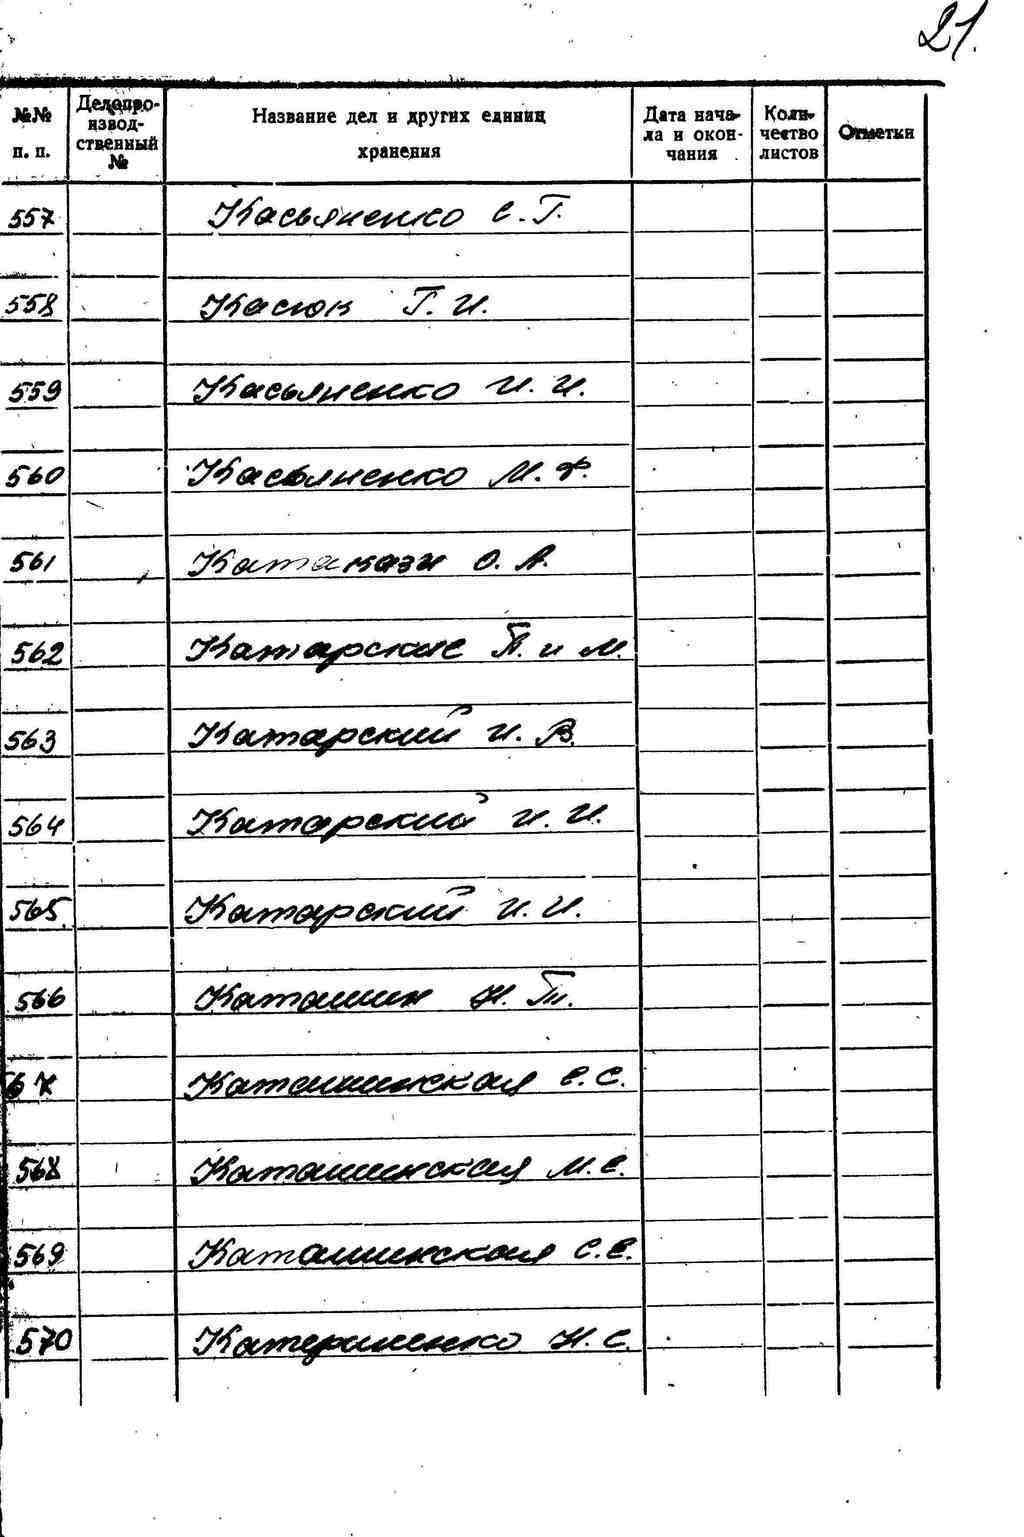 21.
№№ п. п. Делопроизводственный № Название дел и других единиц хранения Дата начала и окончания Количество листов Отметки
557 Касьяненко С. Г.
558 Касюк Г. И.
559 Касьяненко И. И.
560 Касьяненко М. Ф.
561 Катакази О. А.
562 Катарские П. и М.
563 Катарский И. В.
564 Катарский И. И.
565 Катарский И. И.
566 Каташин Н. Т.
567 Каташинская Е. С.
568 Каташинская М. С.
569 Каташинская С. С.
570 Катериненко Н. С.